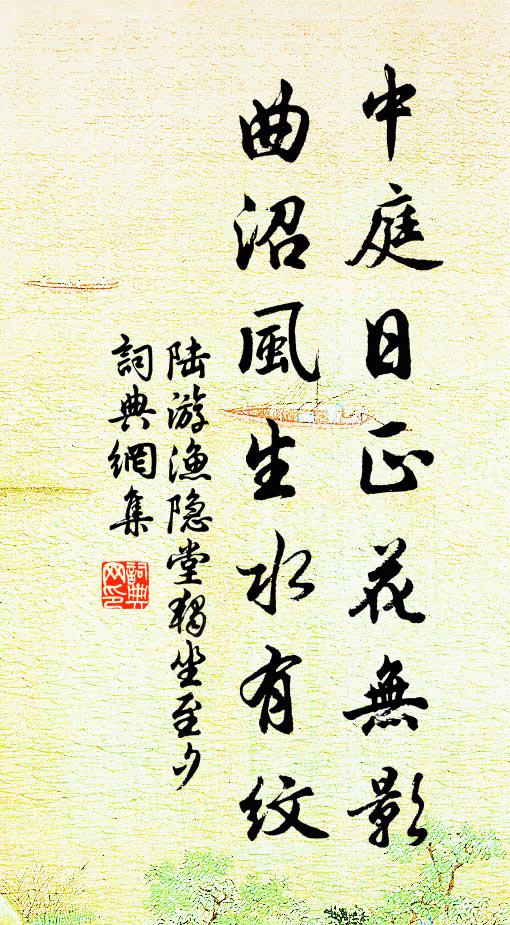 中庭日正花無影
曲沼風生水有紋
陆游渔隐堂獨坐至夕
詞典網集
詞典网印